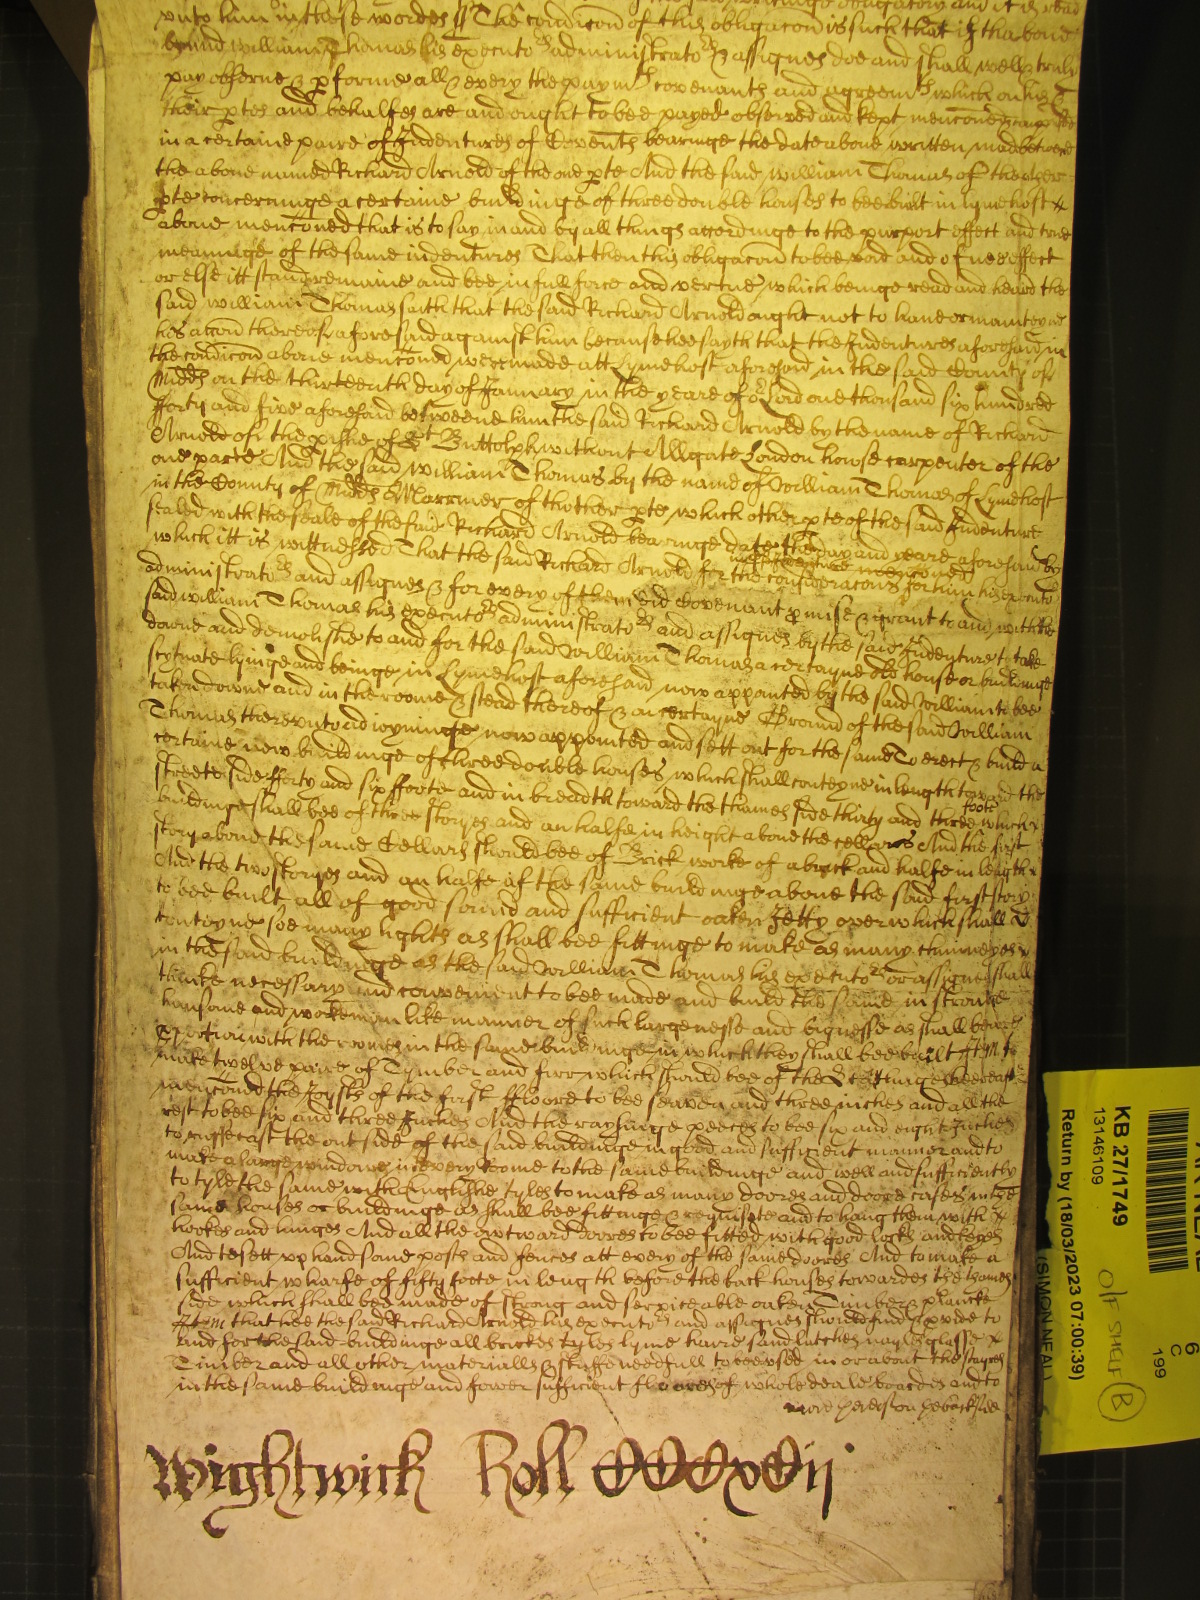 vnto him in these wordes The condicon of this obligacon is such that if tha boue
bound william Thomas his executors administrators & assignes doe and shall well & truly
pay obserue & pforme all & euery the paymts covenants and agreemts which on his &
their ptes and behalfes are and ought to bee payed obserued and kept menconed
in a certaine paire of Indentures of Covents bearinge the date aboue written made betweene
the aboue named Richard Arnold of the one pte And the said william Thomas of the other
pte concerninge a certaine buildinge of three double houses to bee built in lymehost
aboue menconed that is to say in and by all things accordinge to the purport effect and true
meaninge of the same indentures That then this obligacon to bee void and of noe effect
or else itt stand remaine and bee in full force and vertue, which beinge read and heard the
said william Thomas saith that the said Richard Arnold ought not to haue or mainteyne
his accon thereof aforesaid against him because hee sayth that the Indentures aforesaid in
the condicon aboue menconed were made att Lymehost aforesaid in the said County of
Midds on the thirteenth day of January in the yeare of or Lord one thousand six hundred
forty and five aforesaid betweene him the said Richard Arnold by the name of Richard
Arnold of the pishe of St Buttolph without Allgate London howse carpenter of the
one parte And the said william Thomas by the name of William Thomas of Lymehost
in the County of Midds Marriner of thother pte, which other pte of the said Indenture
sealed with the seale of the said Richard Arnold bearinge date the day and yeare aforesaid by
which itt is wittnessed That the said Richard Arnold for the consideracons for him his executors
administrators and assignes & for every of them did Covenant pmise & grant to and with the
said william Thomas his executors administrators and assignes by the said Indenture to take
downe and demolishe to and for the said William Thomas a certayne old house or buildinge
scituate lyinge and beinge in Lymehost aforesaid now appointed by the said William to bee
taken downe and in the roome & stead thereof & on certayne Ground of the said William
Thomas therevnto adioyninge now appointed and sett out for the same To erect & build a
certaine new buildinge of three double houses, which shall conteyne in length toward the
streete side fforty and six foote and in breadth toward the thames side thirty and three foote which
buildinge shall bee of three storyes and an halfe in height aboue the cellars And the first
story aboue the same Cellars should bee of Brick worke of a brick and halfe in length
And the two storyes and an halfe of the same buildinge aboue the said first story
to bee built all of good sound and sufficient oaken Jetty over which shall
conteyne soe many lights as shall bee fittinge to make as many chimneyes
in the said buildinge as the said William Thomas his executors or assignes shall
thinke necessary and convenient to bee made and build the same in stronge
hansome and workemanlike manner of such largenesse and bignesse as shall beare
pportion with the roomes in the same buildinge in which they shall bee built Itm to
make twelve paire of Tymber and firr which should bee of the
menconed the Joysts of the first ffloore to bee seaven and three inches and all the
rest to bee six and three Inches And the raysinge peeces to bee six and eight Inches
to ruffecast the out side of the said buildinge in good and sufficient manner and to
make a large windowe in every Roome to the same buildinge and well and sufficiently
to tyle the same with Englishe tyles to make as many doores and doore cases in the
same houses or buildinge as shall bee fittinge & requisite and to hang them with
hookes and hinges And all the outward doores to bee fitted with good locks and keyes
And to sett vp handsome posts and fences att every of the same doores And to make a
sufficient wharfe of fifty foote in length before the back houses towardes the thames
side which shall bee made of strong and serviceable oaken Timber & plancke
Itm that hee the said Richard Arnold his executors and assignes should find & pvide to
and for the said buildinge all brickes tyles lyme haire sand latches nayles glasse
Timber and all other materialls & stuffe needfull to bee vsed in or about the stayres
in the same buildinge and fower sufficient floores of whole deale boardes and to
more hereof on the backside
Wightwick Roll CCCCxCij
KB 27/1749
13146109
Return by (18/03/2023 07:00:39)
(SIMON NEAL)
O/F SHELF B
6
C
199